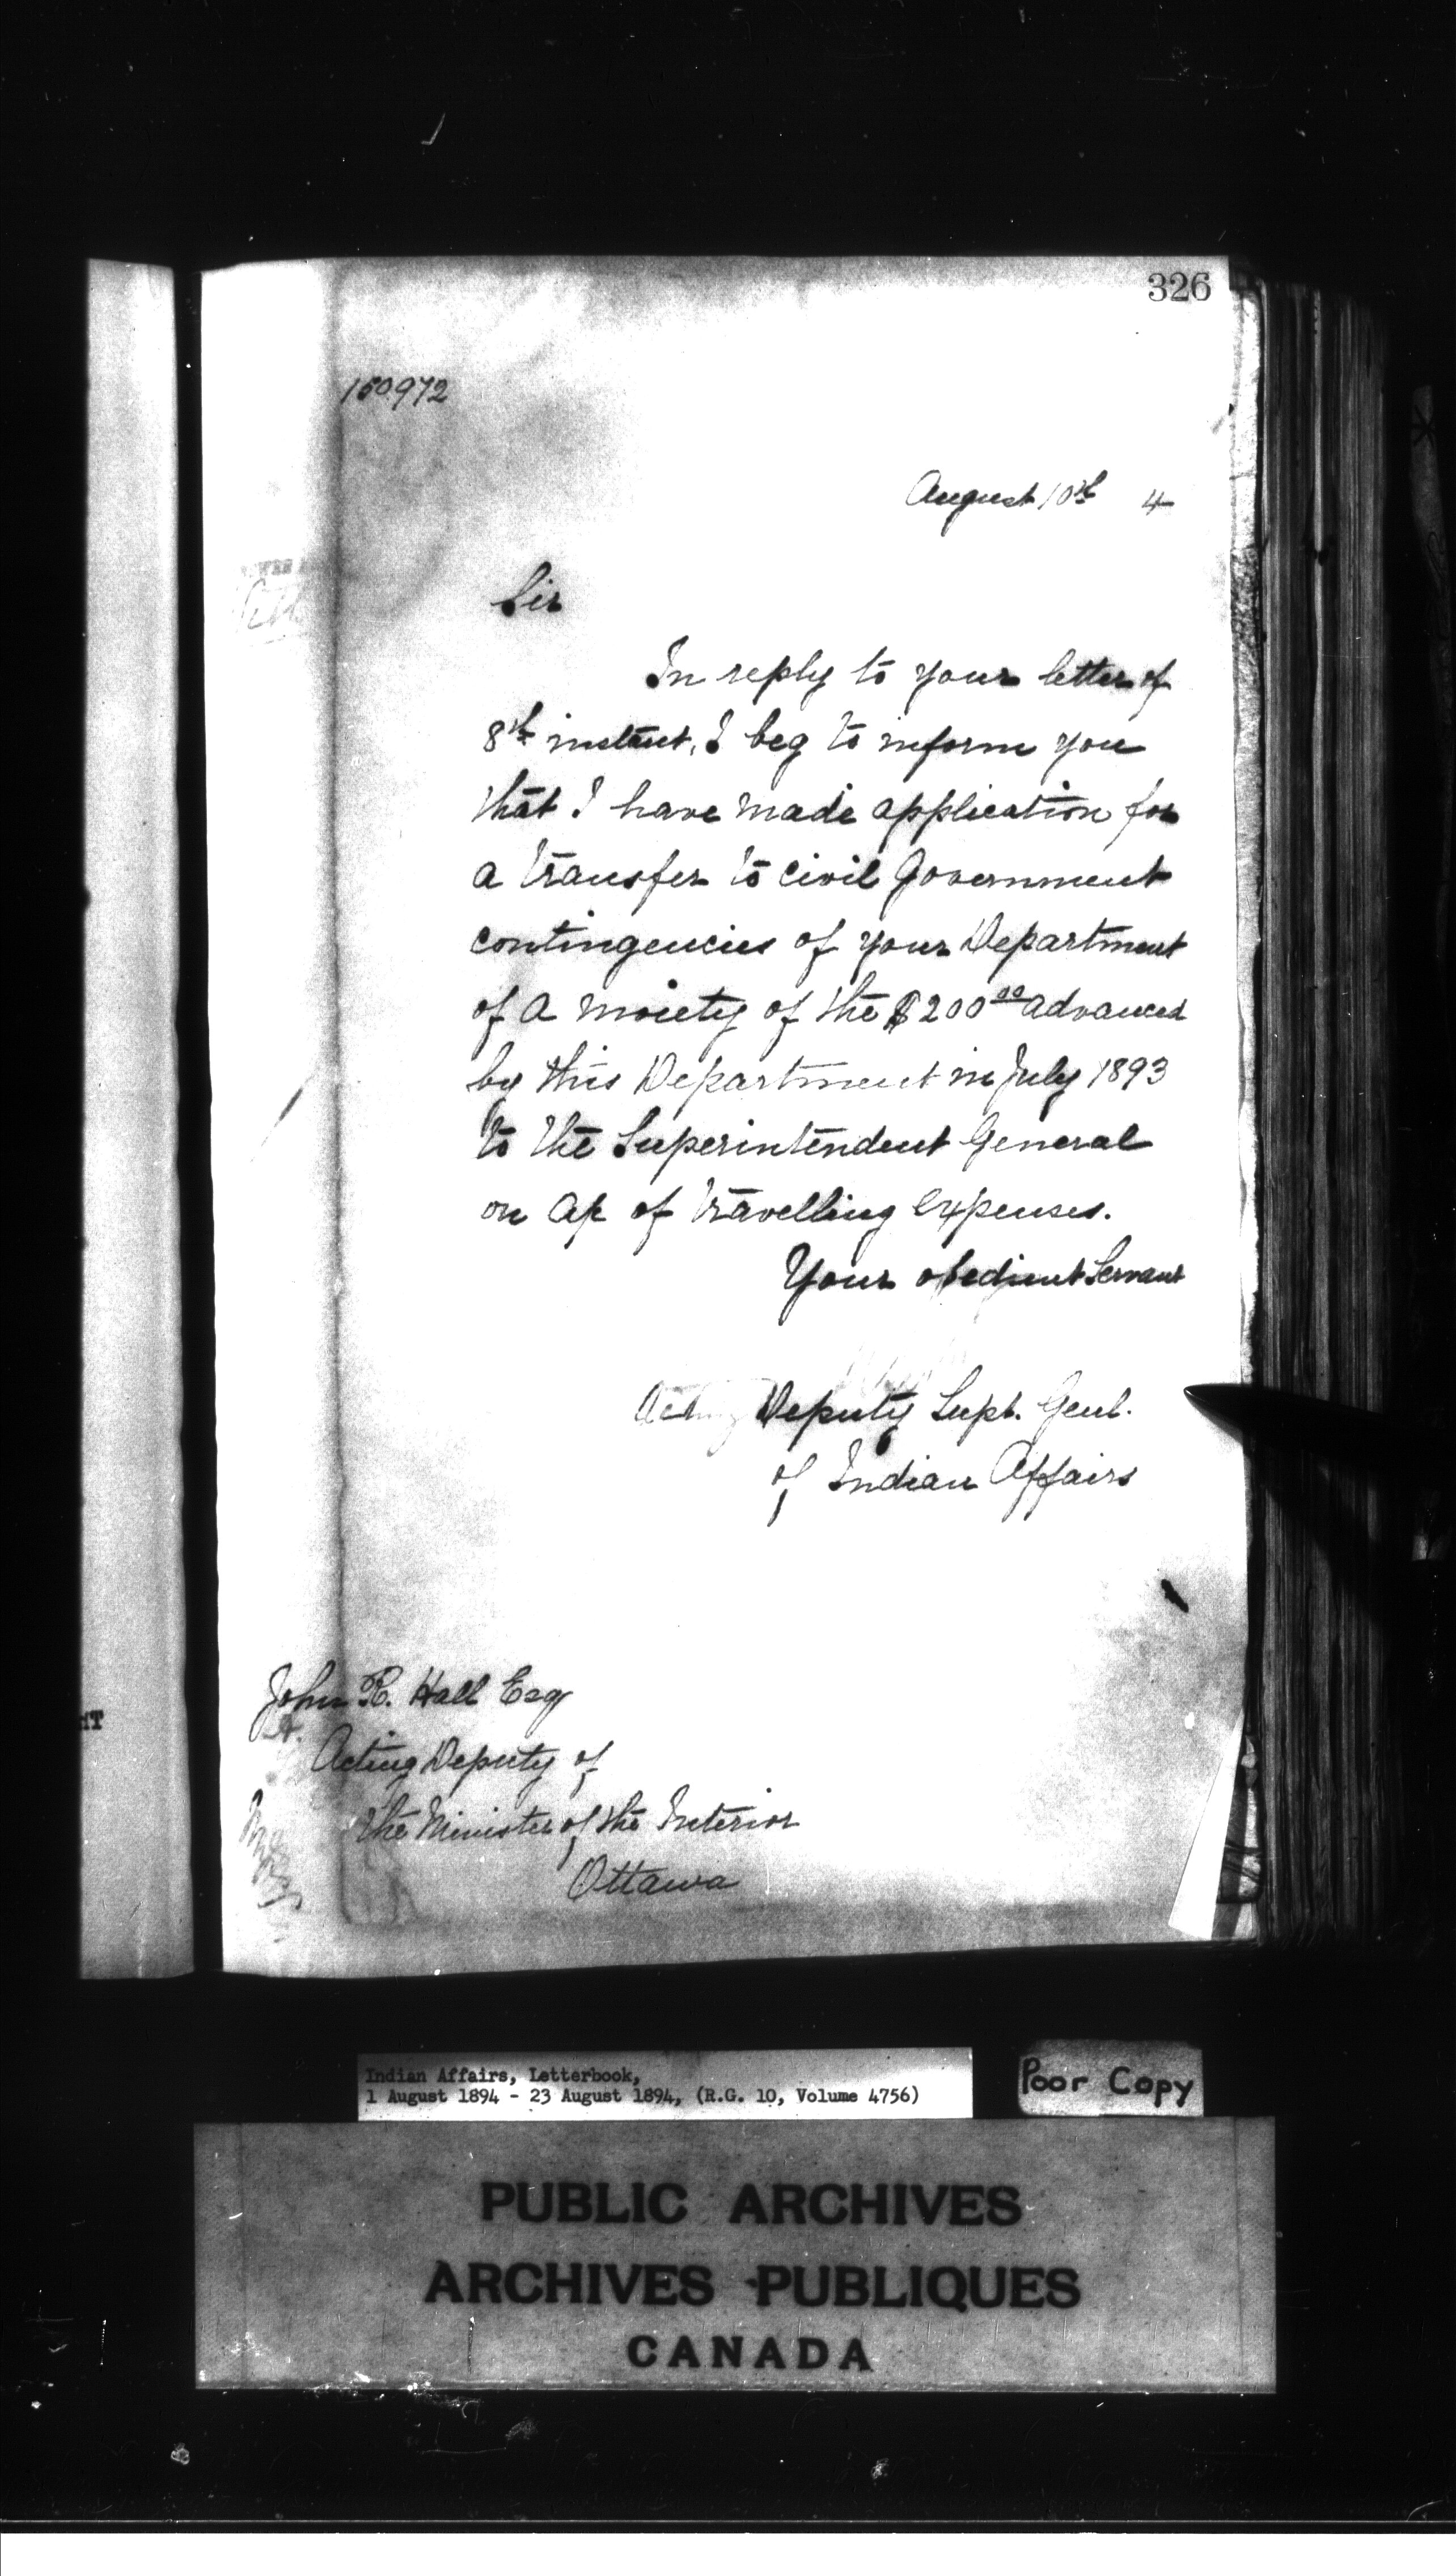 326
150972
August 10th 4
Sir
In reply to your letter of
8th instant, I beg to inform you
that I have made application for
a transfer to Civil Government
contingencies of your Department
of a moiety of the $200.00 advanced
by this Department in July 1893
to the Superintendent General
on a/c of travelling expenses.
Your obedient Servant
Acting Deputy Supt. Genl.
of Indian Affairs
John R. Hall Esq
Acting Deputy of
the Minister of the Interior
Ottawa
Indian Affairs, Letterbook,
1 August 1894 - 23 August 1894, (R.G. 10, Volume 4756)
Poor Copy
PUBLIC ARCHIVES
ARCHIVES PUBLIQUES
CANADA